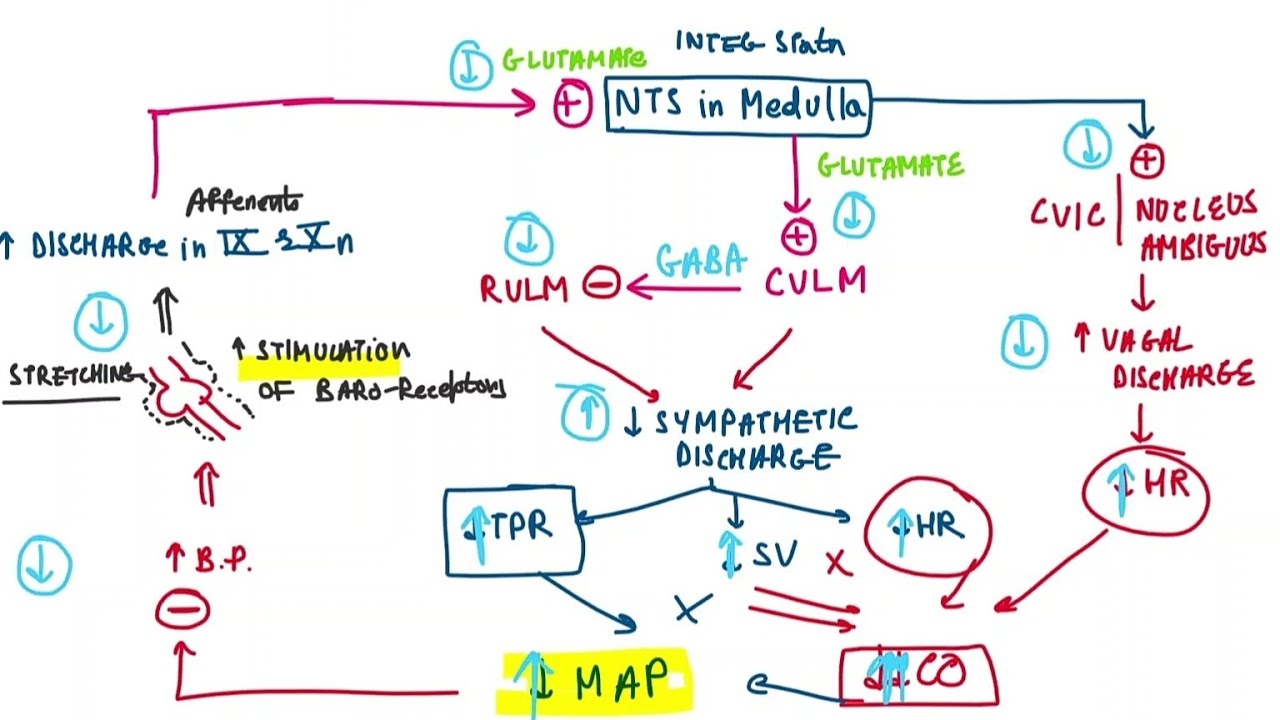 INTEG Statn
↓ GLUTAMATE
⊕ NTS in Medulla
GLUTAMATE
↓
⊕
↓
⊕
CVIC | NUCLEUS
AMBIGUUS
Afferents
↑ DISCHARGE in IX & X n
↓
RVLM ⊖ ← GABA CVLM
↓
STRETCHING
↑ STIMULATION
OF BARO-Receptors
↓
↑ VAGAL
DISCHARGE
↑ ↓ SYMPATHETIC
DISCHARGE
↑↓ HR
↑↓ TPR
↑↓ SV
X
↑↓ HR
↓
↑ B.P.
⊖
X
↑↓ MAP
↓↓↑↑ CO